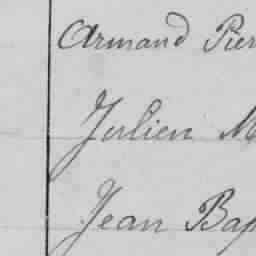 Armand Pier
Julien M
Jean Bap